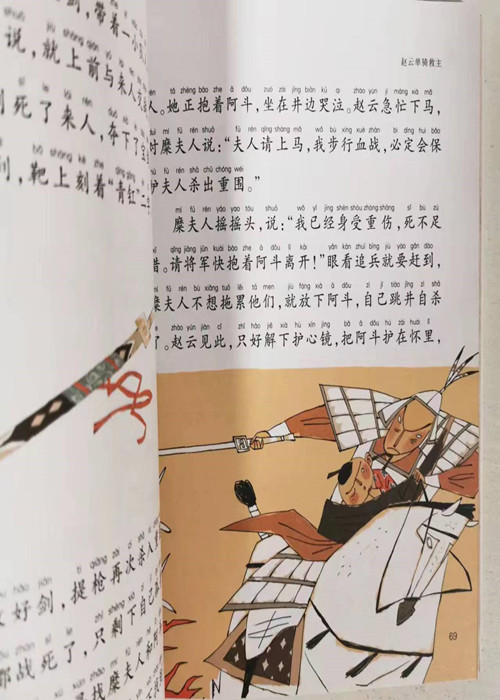 剑,带着一小
说,就上前与来人
刺死了来人,夺下了
剑,靶上刻着“青釭”二
好剑,提枪再次杀入
都战死了,只剩下自己
寻找糜夫人和阿
赵云单骑救主
tā zhèng bào zhe ā dǒu zuò zài jǐng biān kū qì zhào yún jí máng xià mǎ
人。她正抱着阿斗,坐在井边哭泣。赵云急忙下马,
duì mí fū rén shuō fū rén qǐng shàng mǎ wǒ bù xíng xuè zhàn bì dìng huì bǎo
对糜夫人说:“夫人请上马,我步行血战,必定会保
hù fū rén shā chū chóng wéi
护夫人杀出重围。”
mí fū rén yáo yáo tóu shuō wǒ yǐ jīng shēn shòu zhòng shāng sǐ bù zú
糜夫人摇摇头,说:“我已经身受重伤,死不足
xī qǐng jiāng jūn kuài bào zhe ā dǒu lí kāi yǎn kàn zhuī bīng jiù yào gǎn dào
惜。请将军快抱着阿斗离开!”眼看追兵就要赶到,
mí fū rén bù xiǎng tuō lěi tā men jiù fàng xià ā dǒu zì jǐ tiào jǐng zì shā
糜夫人不想拖累他们,就放下阿斗,自己跳井自杀
le zhào yún jiàn cǐ zhǐ hǎo jiě xià hù xīn jìng bǎ ā dǒu hù zài huái lǐ
了。赵云见此,只好解下护心镜,把阿斗护在怀里,
69